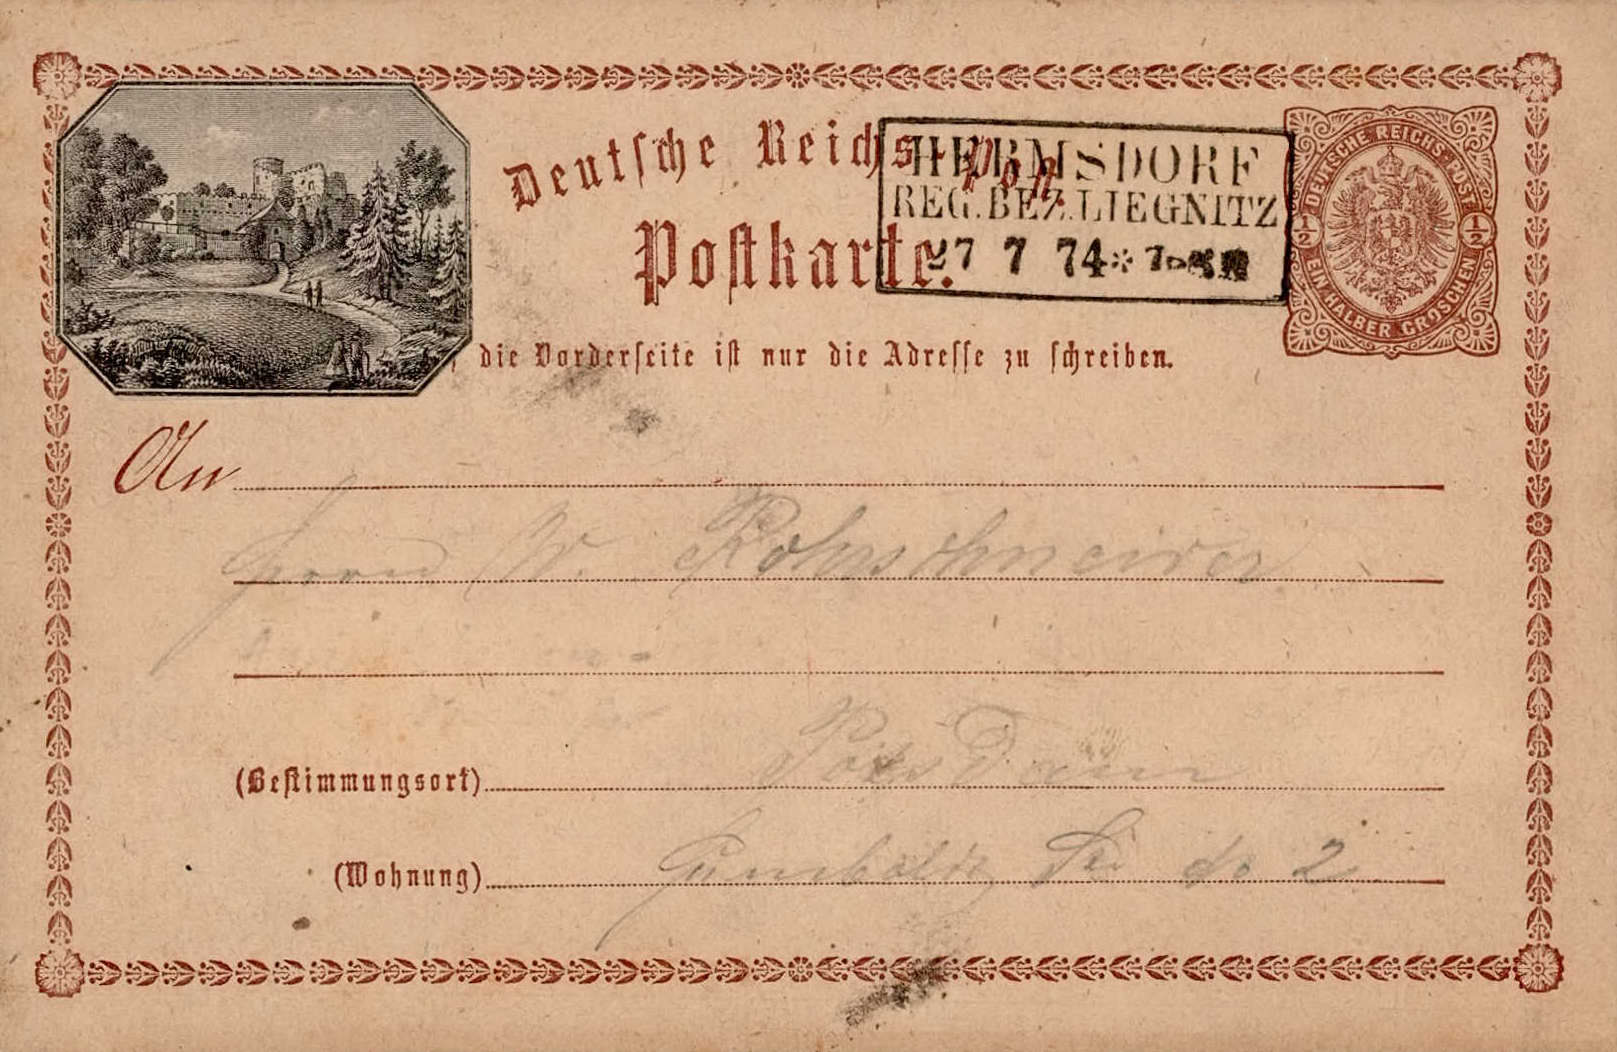 Deutsche Reichs-Post.
Postkarte.
HERMSDORF
REG.BEZ.LIEGNITZ
27 7 74 * 7
DEUTSCHE REICHS-POST
1/2 1/2
EIN HALBER GROSCHEN
die Vorderseite ist nur die Adresse zu schreiben.
An
Herrn W. Rohrschneider
Potsdam
(Bestimmungsort)
(Wohnung) Humboldt Str. 2